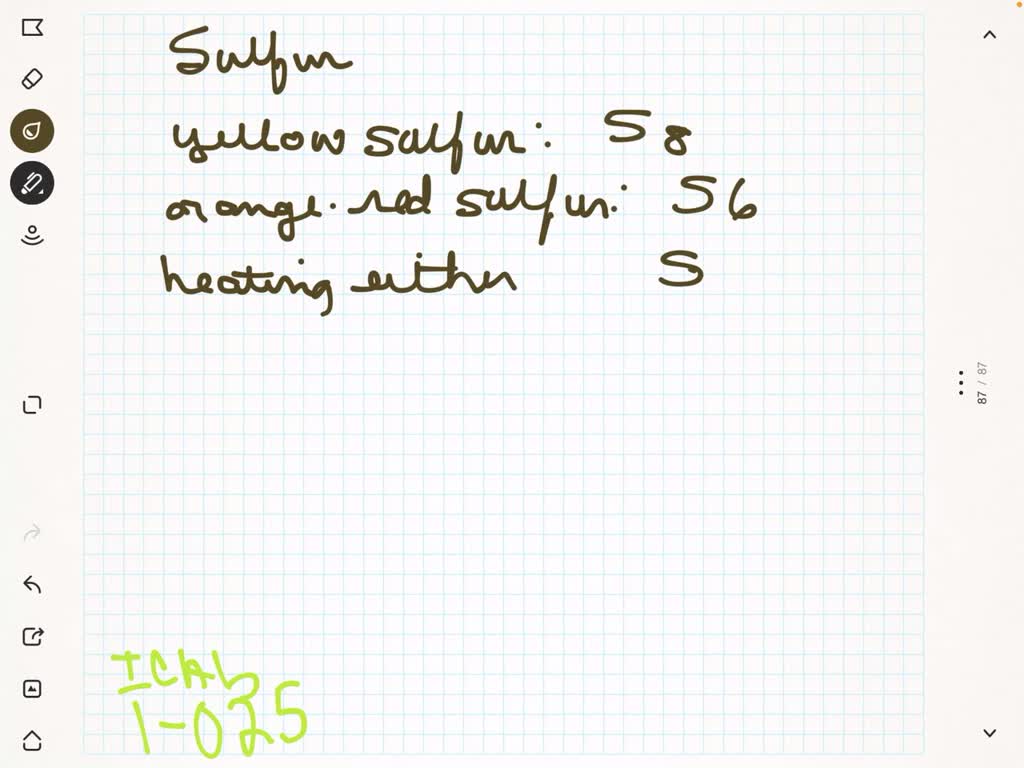 Sulfur
yellow sulfur: S8
orange-red sulfur: S6
heating either S
1-025
87 / 87